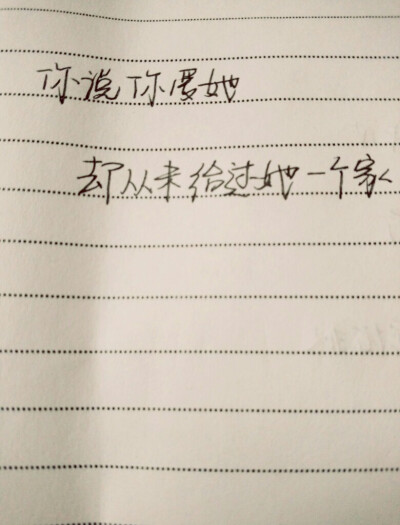 你说你要她
却从来给过她一个家